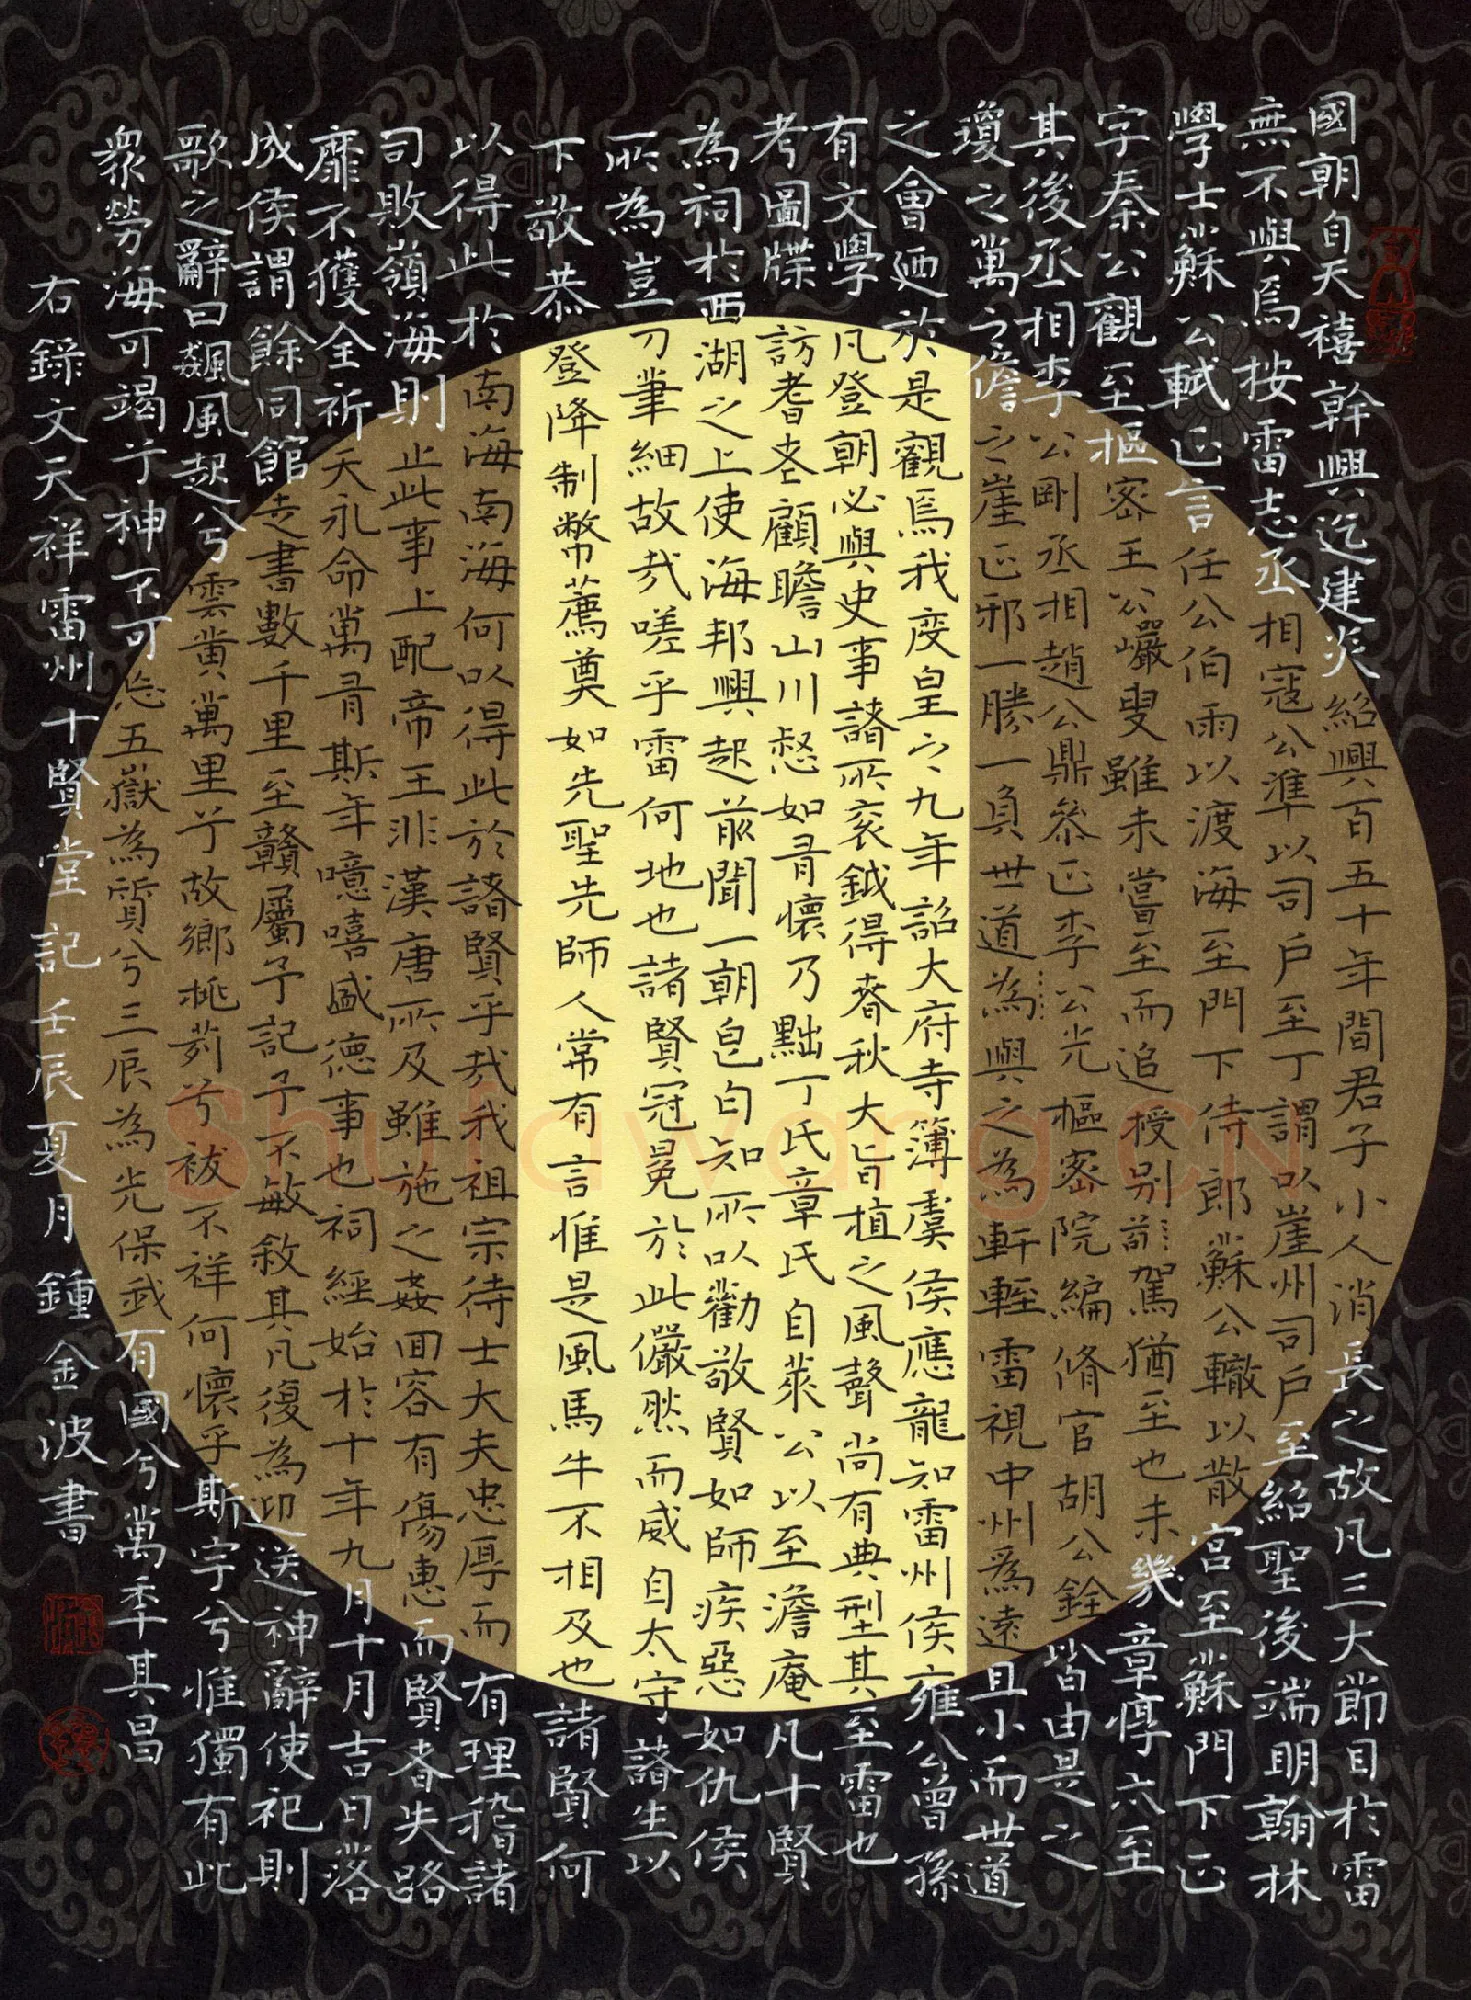 國朝自天禧幹興迄建炎紹興百五十年間君子小人消長之故凡三大節目於雷
無不與焉按雷志丞相寇公準以司戶至丁謂以崖州司戶至紹聖後端明翰林
學士蘇公軾正言任公伯雨以渡海至門下侍郎蘇公轍以散官至蘇門下正
字秦公觀至樞密王公巖叟雖未嘗至而追授別駕猶至也未幾章惇亦至
其後丞相李公剛丞相趙公鼎參正李公光樞密院編脩官胡公銓皆由是之
瓊之萬之儋之崖正邪一勝一負世道為與之為軒輊雷視中州為遠且小而世道
之會迺於是觀焉我度皇之九年詔大府寺簿虞侯應龍知雷州侯雍公曾孫
有文學凡登朝必與史事諸所袞鉞得春秋大旨植之風聲尚有典型其至雷也
考圖牒訪耆耋顧瞻山川惄如有懷乃黜丁氏章氏自萊公以至澹庵凡十賢
為祠於西湖之上使海邦興起前聞一朝皂白知所以勸敬賢如師疾惡如仇侯
所為豈刀筆細故哉嗟乎雷何地也諸賢冠冕於此儼然而威自太守諸生以
下敬恭登降制幣薦奠如先聖先師人常有言惟是風馬牛不相及也諸賢何
以得此於南海南海何以得此於諸賢乎哉我祖宗待士大夫忠厚而有理矜諸
司敗嶺海則止此事上配帝王非漢唐所及雖施之姦回容有傷惠而賢者失路
靡不獲全祈天永命萬有斯年噫嘻盛德事也祠經始於十年九月十月吉日落
成侯謂餘同館走書數千里至贛屬予記予不敏敘其凡復為迎送神辭使祀則
歌之辭曰飆風起兮雲黃萬里兮故鄉桃茢兮祓不祥何懷乎斯宇兮惟獨有此
眾勞海可竭兮神不可忘五嶽為質兮三辰為光保武有國兮萬年其昌
右錄文天祥雷州十賢堂記壬辰夏月鍾金波書
Shufawang.cn